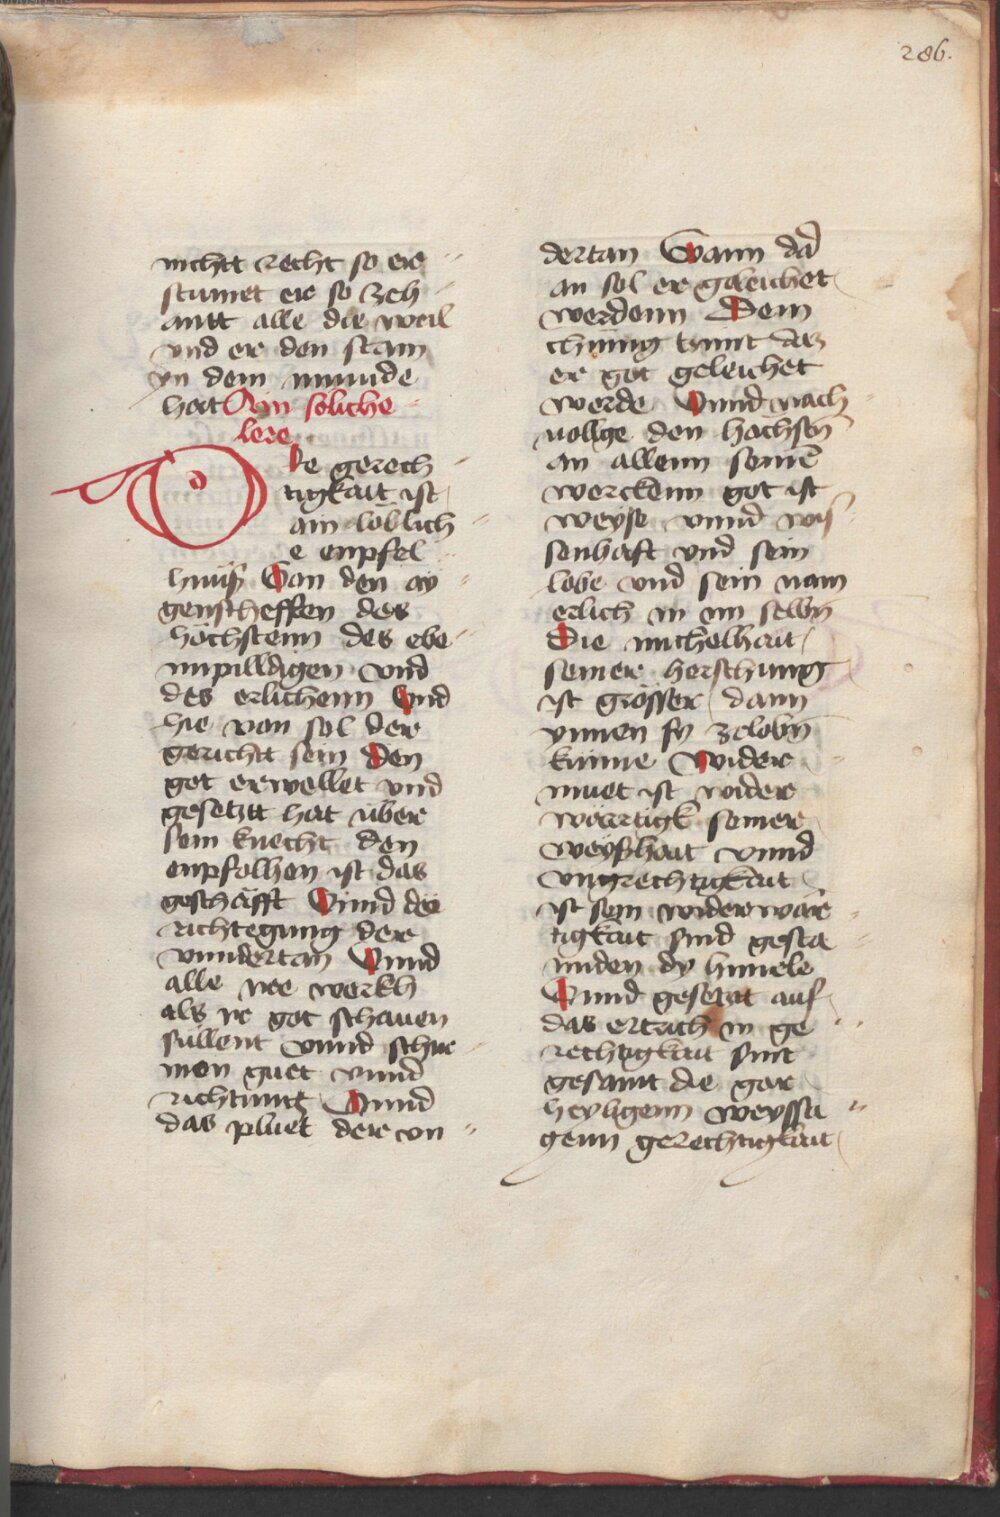 286.
nichtt recht so er
stumet er so zeh
antt alle die weil
vnd er den stain
yn dem munde
hat Ain soliche
lere
Die gerech
tigkait ist
ain löblich
e enpfel
hnuß Von den ay
genscheften des
höchstenn des ebe
npilldigen vnd
des erlichenn Vnd
hie von sol der
gericht sein den
got erwellet vnd
gesetztt hat über
sein knecht den
enpfolhen ist das
geschäfft Vnnd die
richtegung der
vnndertan Vnnd
alle ire werkh
als ir got schauen
süllent vnnd schir
men guet vnnd
richtumb Vnnd
das pluet der vn
dertan Wann dar
an sol er geleichet
werdenn Dem
chünig tzimt das
er got geleichet
werde Vnnd nach
uollge den höchsten
an allenn seinen
werckenn got ist
weyse vnnd wis
senhaft vnd sein
lobe vnd sein nam
erlich in im selbn
Die michelhait
seiner herschung
ist grösser dann
ymen sy zelobn
künne Wider
muet ist wider
wärtigk seiner
weyßhait vnnd
vngrechtigkait
ist sein widerwär
tigkait sind gesta
nnden dy himele
Vnnd gesetzt auf
das ertrich in ge
rechtigkait sint
gesannt die gar
heyligenn weyssa
genn gerechtigkait